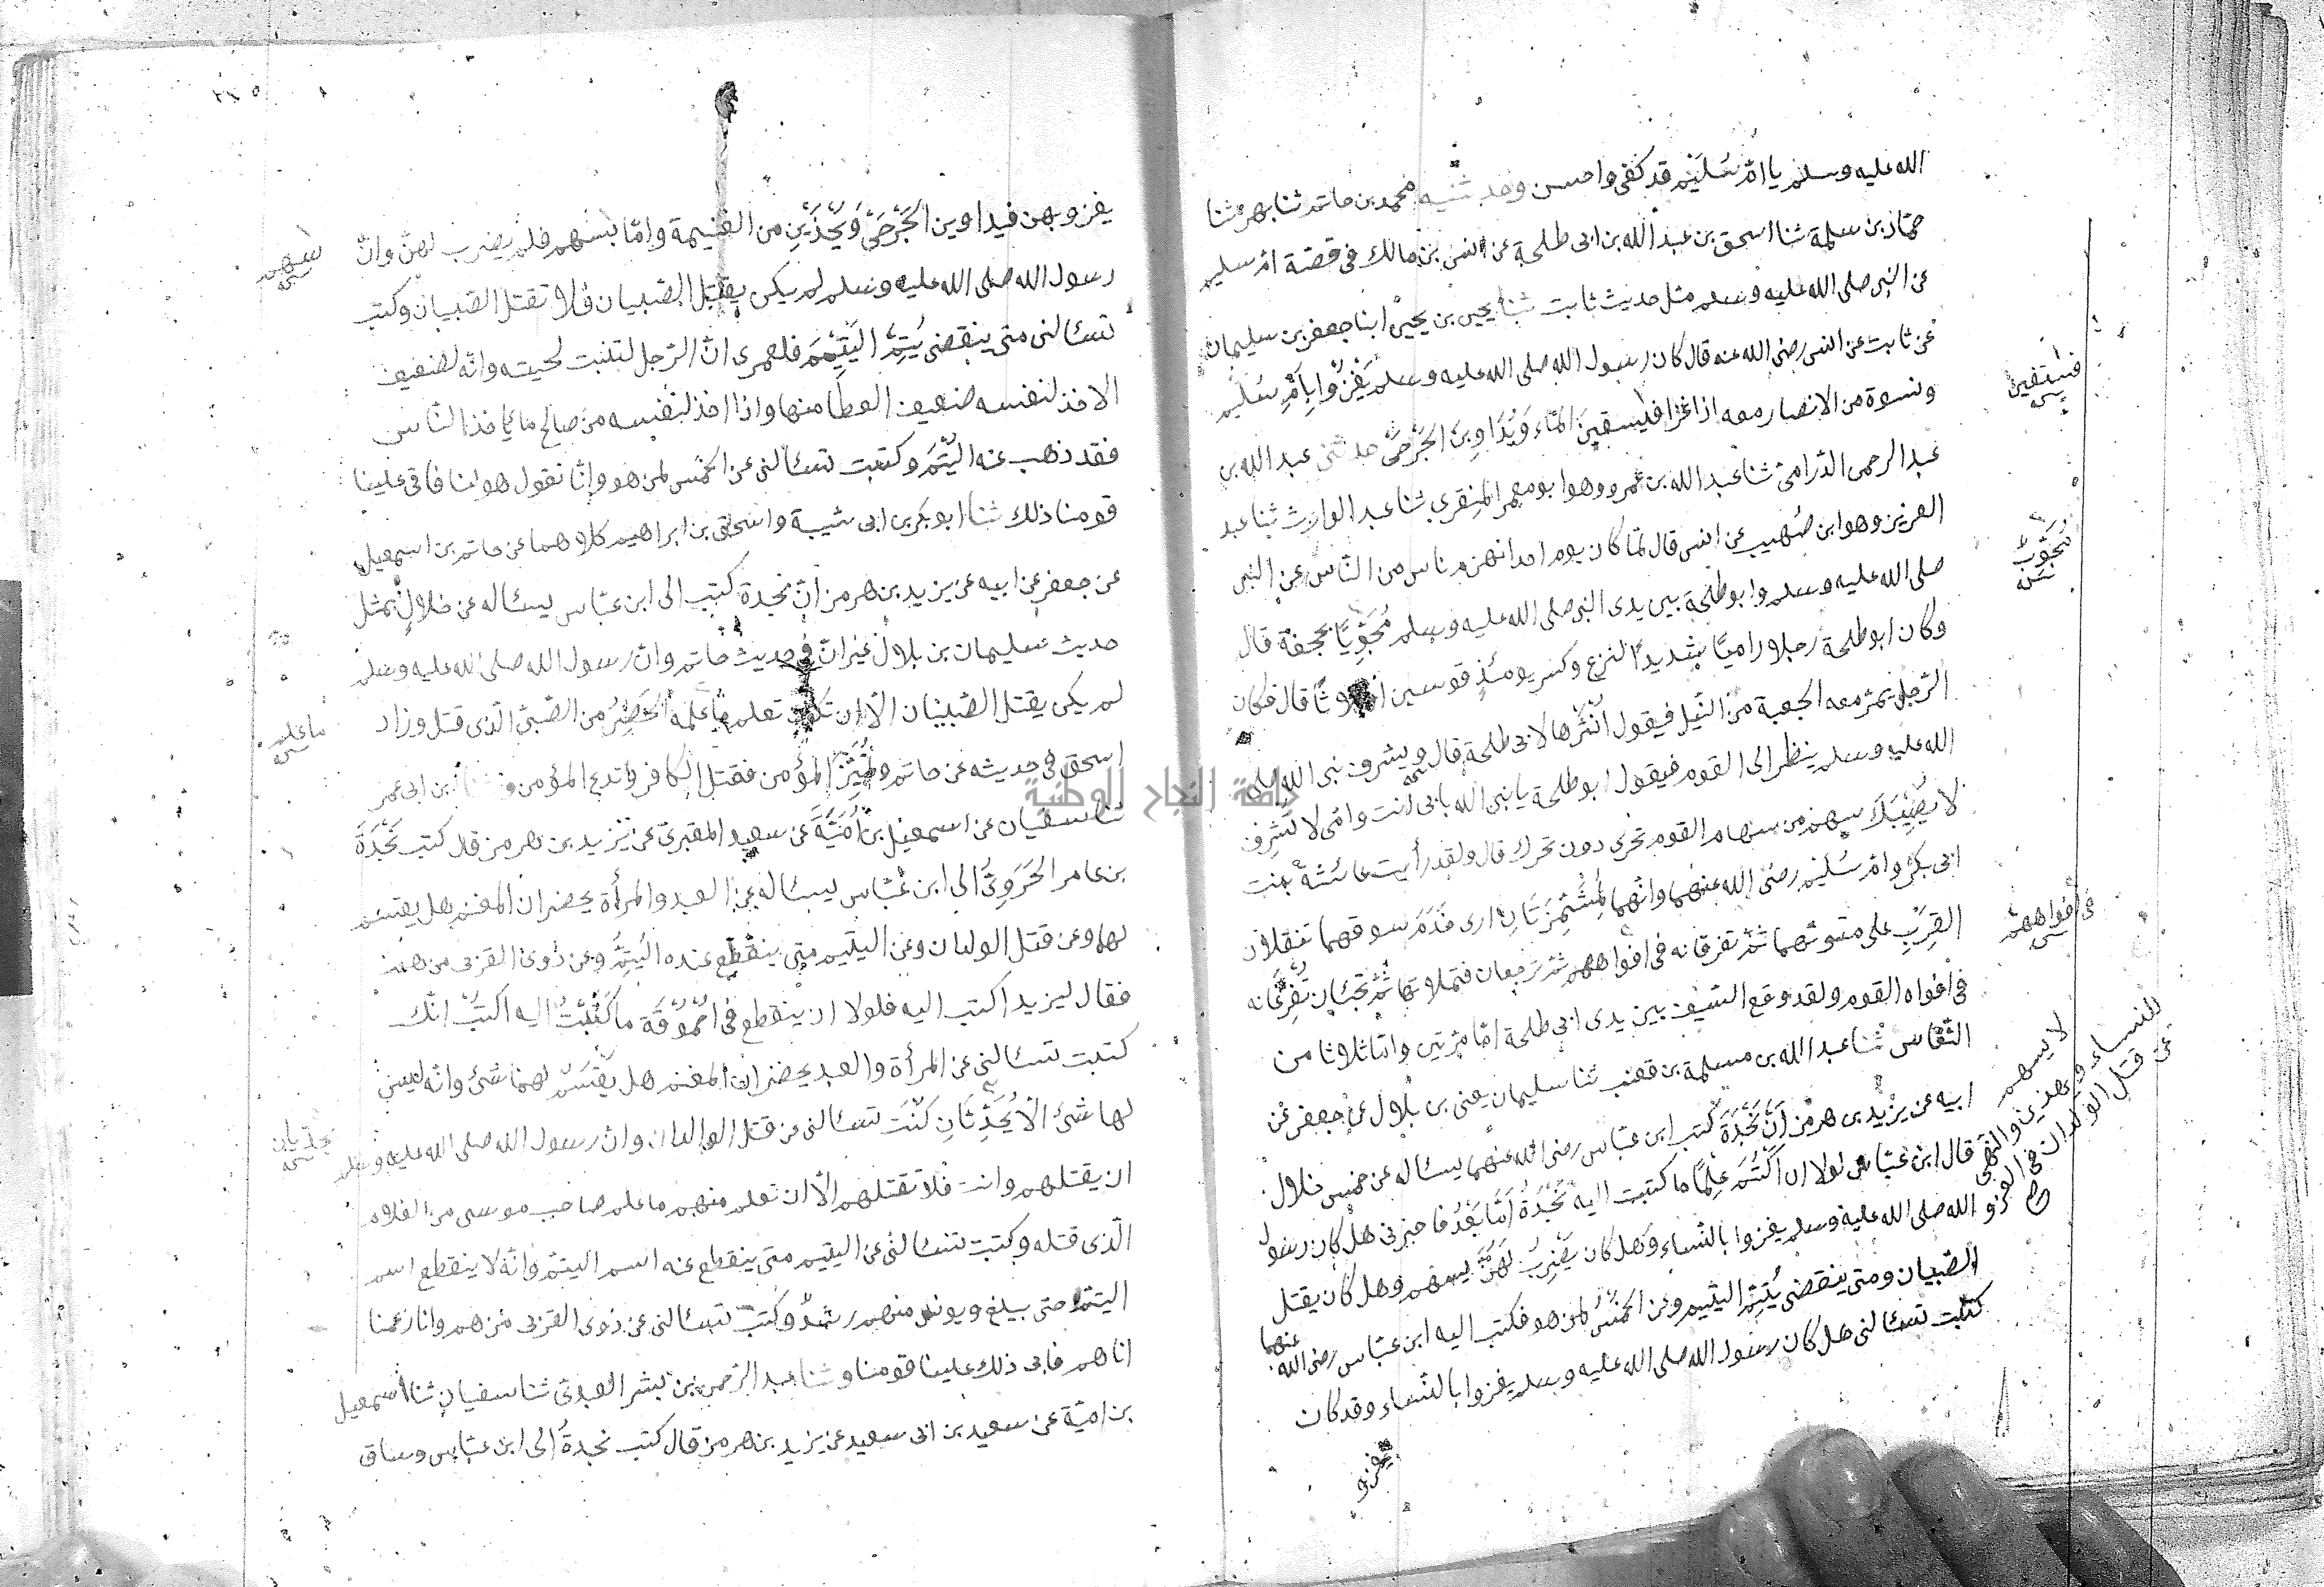 الله عليه وسلم يا ام سليم قد كفى واحسن وحدثنيه محمد بن حاتم ثنا بهز ثنا
حماد بن سلمة ثنا اسحق بن عبد الله بن ابى طلحة عن انس بن مالك فى قصة ام سليم
عن النبى صلى الله عليه وسلم مثل حديث ثابت ثنا يحيى بن يحيى ابنا جعفر بن سليمان
عن ثابت عن انس رضى الله عنه قال كان رسول الله صلى الله عليه وسلم يغزوا بام سليم
ونسوة من الانصار معه اذا غزا فليسقين الماء ويداوين الجرحى حدثنى عبد الله بن
عبد الرحمن الدارمى ثنا عبد الله بن عمرو وهو ابو معمر المنقرى ثنا عبد الوارث ثنا عبد
العزيز وهو ابن صهيب عن انس قال لما كان يوم احد انهزم ناس من الناس عن النبى
صلى الله عليه وسلم وابو طلحة بين يدى النبى صلى الله عليه وسلم مجوبا بحجفة قال
وكان ابو طلحة رجلا راميا شديد النزع وكسر يومئذ قوسين او ثلاثا قال فكان
الرجل يمر معه الجعبة من النبل فيقول انثرها لابى طلحة قال ويشرف نبى الله صلى
الله عليه وسلم ينظر الى القوم فيقول ابو طلحة يا نبى الله بابى انت وامى لا تشرف
لا يصيبك سهم من سهام القوم نحرى دون نحرك قال ولقد رأيت عائشة بنت
ابى بكر وام سليم رضى الله عنهما وانهما لمشمرتان ارى خدم سوقهما تنقلان
القرب على متونهما ثم تفرغانه فى افواههم ثم ترجعان فتملانها ثم تجيئان تفرغانه
فى افواه القوم ولقد وقع السيف بين يدى ابى طلحة اما مرتين واما ثلاثا من
النعاس ثنا عبد الله بن مسلمة بن قعنب ثنا سليمان يعنى بن بلال عن جعفر عن
ابيه عن يزيد بن هرمز ان نجدة كتب ابن عباس رضى الله عنهما يسئاله عن خمس خلال
قال ابن عباس لولا ان اكتم علما ما كتبت اليه نجدة اما بعد فاخبرنى هل كان رسول
الله صلى الله عليه وسلم يغزوا بالنساء وهل كان يضرب لهن بسهم وهل كان يقتل
الصبيان ومتى ينقضى يتم اليتيم وعن الخمس لمن هو فكتب اليه ابن عباس رضى الله عنهما
كتبت تسئالنى هل كان رسول الله صلى الله عليه وسلم يغزوا بالنساء وقد كان
يغزو
فيسقين
مجوب
فى افواههم
لا يسهم
للنساء ويحذين والنهى
عن قتل الولدان فى الغزو
يغزو بهن فيداوين الجرحى ويحذين من الغنيمة واما بسهم فلم يضرب لهن وان
رسول الله صلى الله عليه وسلم لم يكن يقتل الصبيان فلا تقتل الصبيان وكتب
تسئالنى متى ينقضى يتم اليتيم فلعمرى ان الرجل لتنبت لحيته وانه لضعيف
الاخذ لنفسه ضعيف العطا منها واذا اخذ لنفسه من صالح ما يأخذ الناس
فقد ذهب عنه اليتم وكتبت تسئالنى عن الخمس لمن هو وانا نقول هو لنا فابى علينا
قومنا ذلك ثنا ابو بكر بن ابى شيبة واسحق بن ابراهيم كلاهما عن حاتم بن اسمعيل
عن جعفر عن ابيه عن يزيد بن هرمز ان نجدة كتب الى ابن عباس يسئاله عن خلال بمثل
حديث سليمان بن بلال غير ان فى حديث حاتم وان رسول الله صلى الله عليه وسلم
لم يكن يقتل الصبيان الا ان تكون تعلم ما علمه الخضر من الصبى الذى قتل وزاد
اسحق فى حديثه عن حاتم وتميز المؤمن فتقتل الكافر وتدع المؤمن وثنا ابن ابى عمر
ثنا سفيان عن اسمعيل بن امية عن سعيد المقبرى عن يزيد بن هرمز قال كتب نجدة
بن عامر الحرورى الى ابن عباس يسئاله عن العبد والمرأة يحضران المغنم هل يقسم
لهما وعن قتل الولدان وعن اليتيم متى ينقطع عنه اليتم وعن ذوى القربى من هم
فقال ليزيد اكتب اليه فلولا ان ينقطع فى احموقة ما كتبت اليه اكتب انك
كتبت تسئالنى عن المرأة والعبد يحضران المغنم هل يقسم لهما شئ وانه ليس
لها شئ الا يحذيان كتبت تسئالنى عن قتل الوالدان وان رسول الله صلى الله عليه وسلم
ان يقتلهم وانت فلا تقتلهم الا ان تعلم منهم ما علم صاحب موسى من الغلام
الذى قتله وكتبت تسئالنى عن اليتيم متى ينقطع عنه اسم اليتم وانه لا ينقطع اسم
اليتم حتى يبلغ ويونس منهم رشد وكتبت تسئالنى عن ذوى القربى من هم وانا زعمنا
انا هم فابى ذلك علينا قومنا وثنا عبد الرحمن بن بشر العبدى ثنا سفيان ثنا اسمعيل
بن امية عن سعيد بن ابى سعيد عن يزيد بن هرمز قال كتب نجدة الى ابن عباس وساق
بسهم
ما علم
يحذيان
جامعة النجاح الوطنية